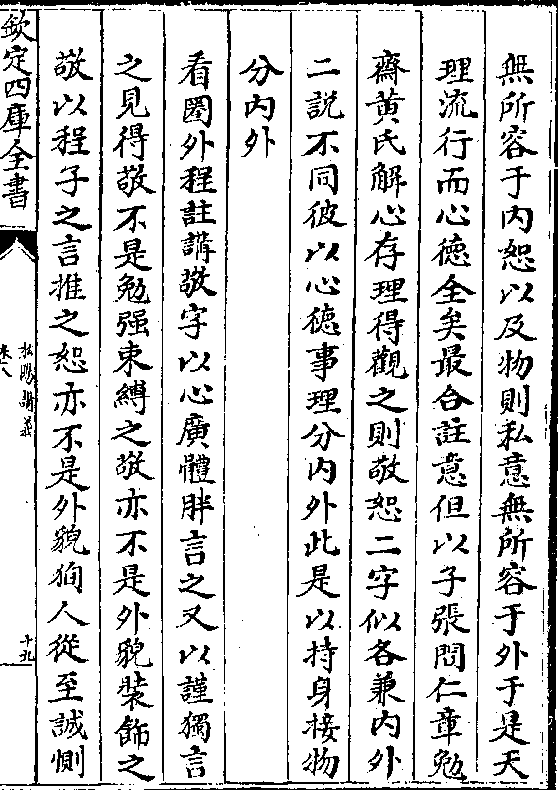 無所容于内恕以及物則私意無所容于外于是天
理流行而心德全矣最合註意但以子張問仁章勉
齋黃氏解心存理得觀之則敬恕二字似各兼内外
二說不同彼以心德事理分内外此是以持身接物
分内外
看圈外程註講敬字以心廣體胖言之又以謹獨言
之見得敬不是勉强束縛之敬亦不是外貌裝飾之
敬以程子之言推之恕亦不是外貌狥人從至誠惻
欽定四庫全書
松陽講義
卷八
十九